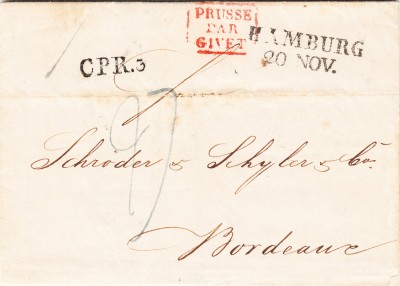 PRUSSE
PAR
GIVET
HAMBURG
20 NOV.
CPR.3
Schröder & Schyler & Co.
Bordeaux